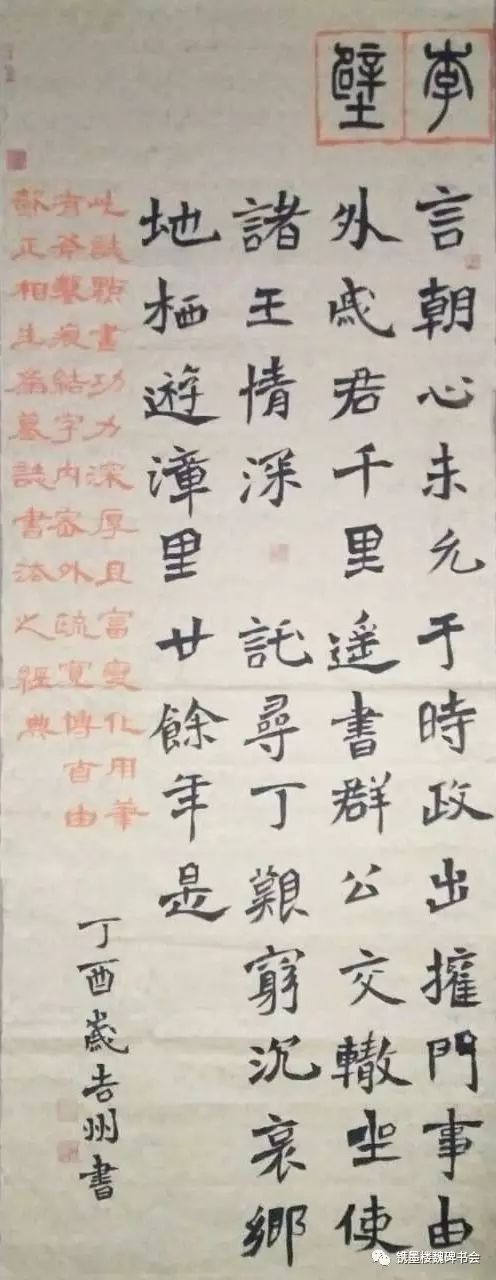 李壁
言朝心未允于時政出擁門事由
外戚君千里遥書群公交轍坐使
諸王情深託尋丁艱窮沉哀鄉
地栖遊漳里廿餘年是
此誌點畫功力深厚且富變化用筆
有斧鑿痕結字内密外疏寬博自由
欹正相生為墓誌書法之經典
丁酉歲吉州書
镌墨楼魏碑书会